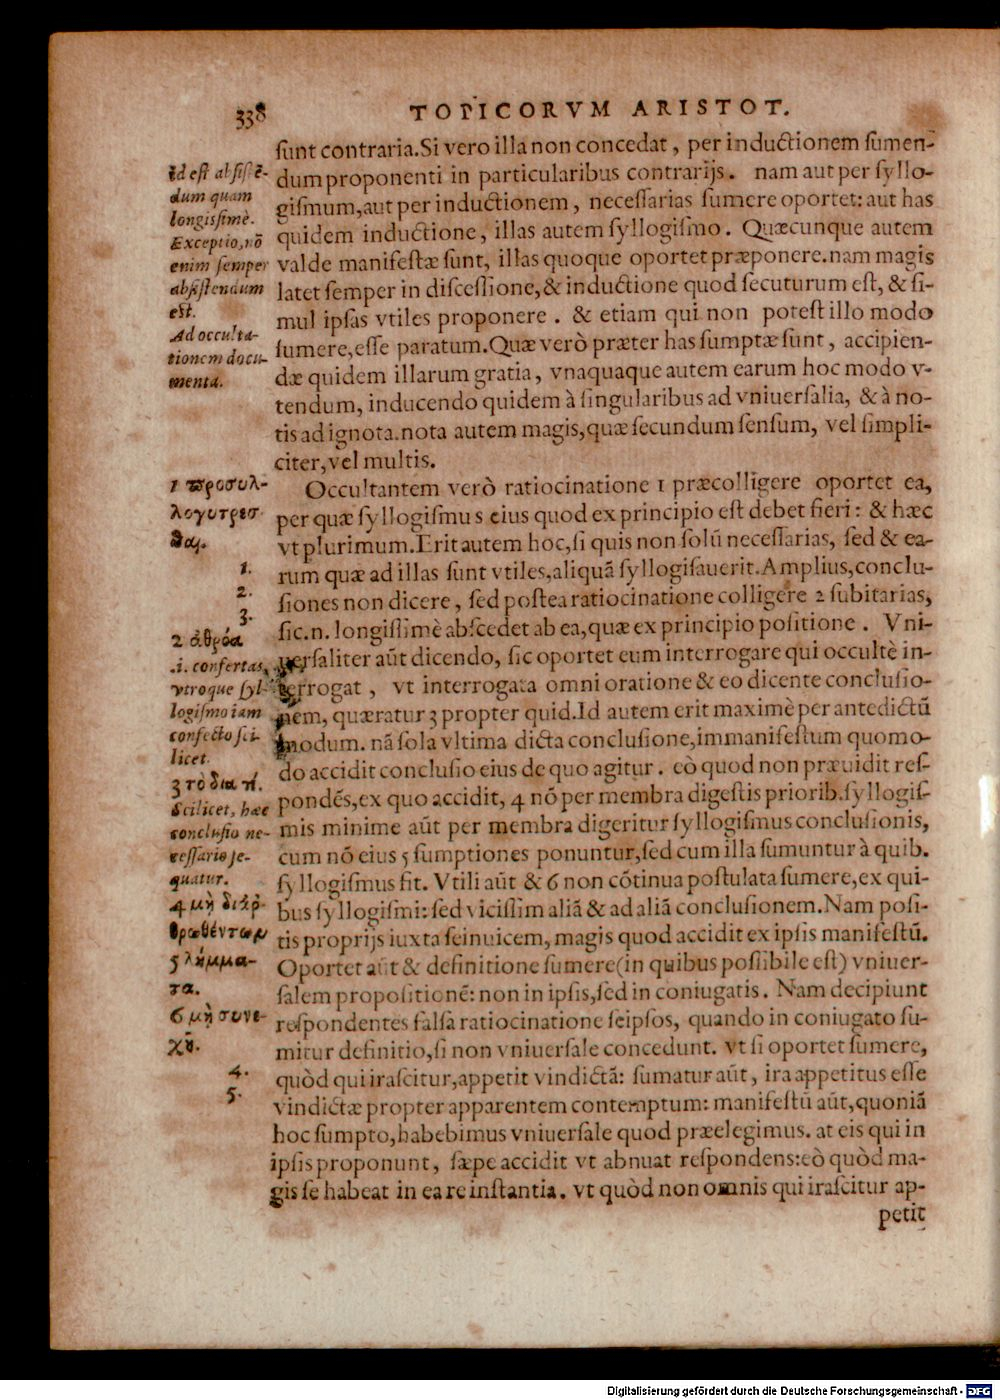 338 TOPICORVM ARISTOT.
sunt contraria. Si vero illa non concedat, per inductionem sumen-
dum proponenti in particularibus contrarijs. nam aut per syllo-
gismum, aut per inductionem, necessarias sumere oportet: aut has
quidem inductione, illas autem syllogismo. Quæcunque autem
valde manifestæ sunt, illas quoque oportet præponere. nam magis
latet semper in discessione, & inductione quod secuturum est, & si-
mul ipsas vtiles proponere. & etiam qui non potest illo modo
sumere, esse paratum. Quæ verò præter has sumptæ sunt, accipien-
dæ quidem illarum gratia, vnaquaque autem earum hoc modo v-
tendum, inducendo quidem à singularibus ad vniuersalia, & à no-
tis ad ignota. nota autem magis, quæ secundum sensum, vel simpli-
citer, vel multis.
Occultantem verò ratiocinatione 1 præcolligere oportet ea,
per quæ syllogismus eius quod ex principio est debet fieri: & hæc
vt plurimum. Erit autem hoc, si quis non solũ necessarias, sed & ea-
rum quæ ad illas sunt vtiles, aliquã syllogisauerit. Amplius, conclu-
siones non dicere, sed postea ratiocinatione colligere 2 subitarias,
sic. n. longissimè abscedet ab ea, quæ ex principio positione. Vni-
uersaliter aũt dicendo, sic oportet eum interrogare qui occultè in-
terrogat, vt interrogata omni oratione & eo dicente conclusio-
nem, quæratur 3 propter quid. Id autem erit maximè per antedictũ
modum. nã sola vltima dicta conclusione, immanifestum quomo-
do accidit conclusio eius de quo agitur. eò quod non præuidit res-
pondẽs, ex quo accidit, 4 nõ per membra digestis priorib. syllogis-
mis minime aũt per membra digeritur syllogismus conclusionis,
cum nõ eius 5 sumptiones ponuntur, sed cum illa sumuntur à quib.
syllogismus fit. Vtili aũt & 6 non cõtinua postulata sumere, ex qui-
bus syllogismi: sed vicissim aliã & ad aliã conclusionem. Nam posi-
tis proprijs iuxta seinuicem, magis quod accidit ex ipsis manifestũ.
Oportet aũt & definitione sumere (in quibus possibile est) vniuer-
salem propositionẽ: non in ipsis, sed in coniugatis. Nam decipiunt
respondentes falsa ratiocinatione seipsos, quando in coniugato su-
mitur definitio, si non vniuersale concedunt. vt si oportet sumere,
quòd qui irascitur, appetit vindictã: sumatur aũt, ira appetitus esse
vindictæ propter apparentem contemptum: manifestũ aũt, quoniã
hoc sumpto, habebimus vniuersale quod præelegimus. at eis qui in
ipsis proponunt, sæpe accidit vt abnuat respondens: eò quòd ma-
gis se habeat in ea re instantia. vt quòd non omnis qui irascitur ap-
petit
Id est absistẽ-
dum quam
longissimè.
Exceptio, nõ
enim semper
absistendum
est.
Ad occulta-
tionem docu-
menta.
1 προσυλ-
λογιζεσ-
θαι.
1.
2.
3.
2 ἀθρόα
.i. confertas,
vtroque syl-
logismo iam
confecto sci-
licet.
3 τὸ δια τί.
Scilicet, hæc
conclusio ne-
cessario se-
quatur.
4 μὴ διαρ-
θρωθέντων
5 λήμμα-
τα.
6 μὴ συνε-
χῆ.
4.
5.
Digitalisierung gefördert durch die Deutsche Forschungsgemeinschaft - DFG